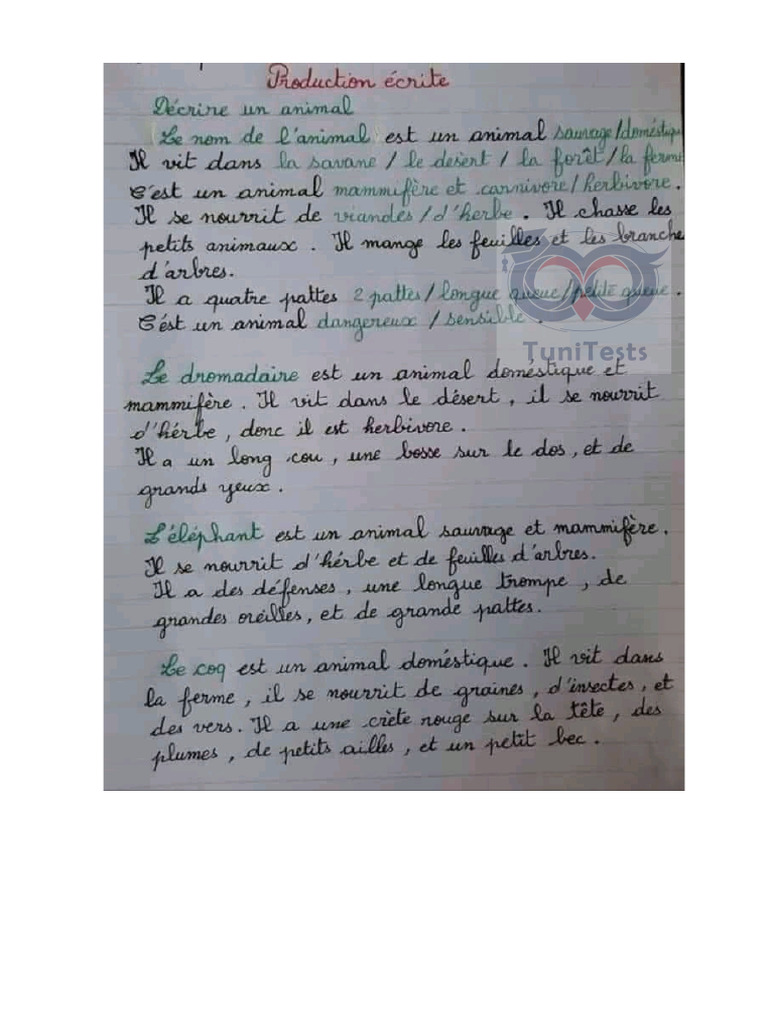 Production écrite
Décrire un animal
Le nom de l'animal est un animal sauvage/doméstiqu
Il vit dans la savane / le désert / la forêt / la ferme
C'est un animal mammifère et carnivore/herbivore.
Il se nourrit de viandes/d'herbe. Il chasse les
petits animaux. Il mange les feuilles et les branche
d'arbres.
Il a quatre pattes 2 pattes/longue queue/petite queue.
C'ést un animal dangereux /sensible.
TuniTests
Le dromadaire est un animal doméstique et
mammifère. Il vit dans le désert, il se nourrit
d'hérbe, donc il est herbivore.
Il a un long cou, une bosse sur le dos, et de
grands yeux.
L'éléphant est un animal sauvage et mammifère.
Il se nourrit d'hérbe et de feuilles d'arbres.
Il a des défenses, une longue trompe, de
grandes oreilles, et de grande pattes.
Le coq est un animal doméstique. Il vit dans
la ferme, il se nourrit de graines, d'insectes, et
des vers. Il a une crète rouge sur la tête, des
plumes, de petits ailles, et un petit bec.